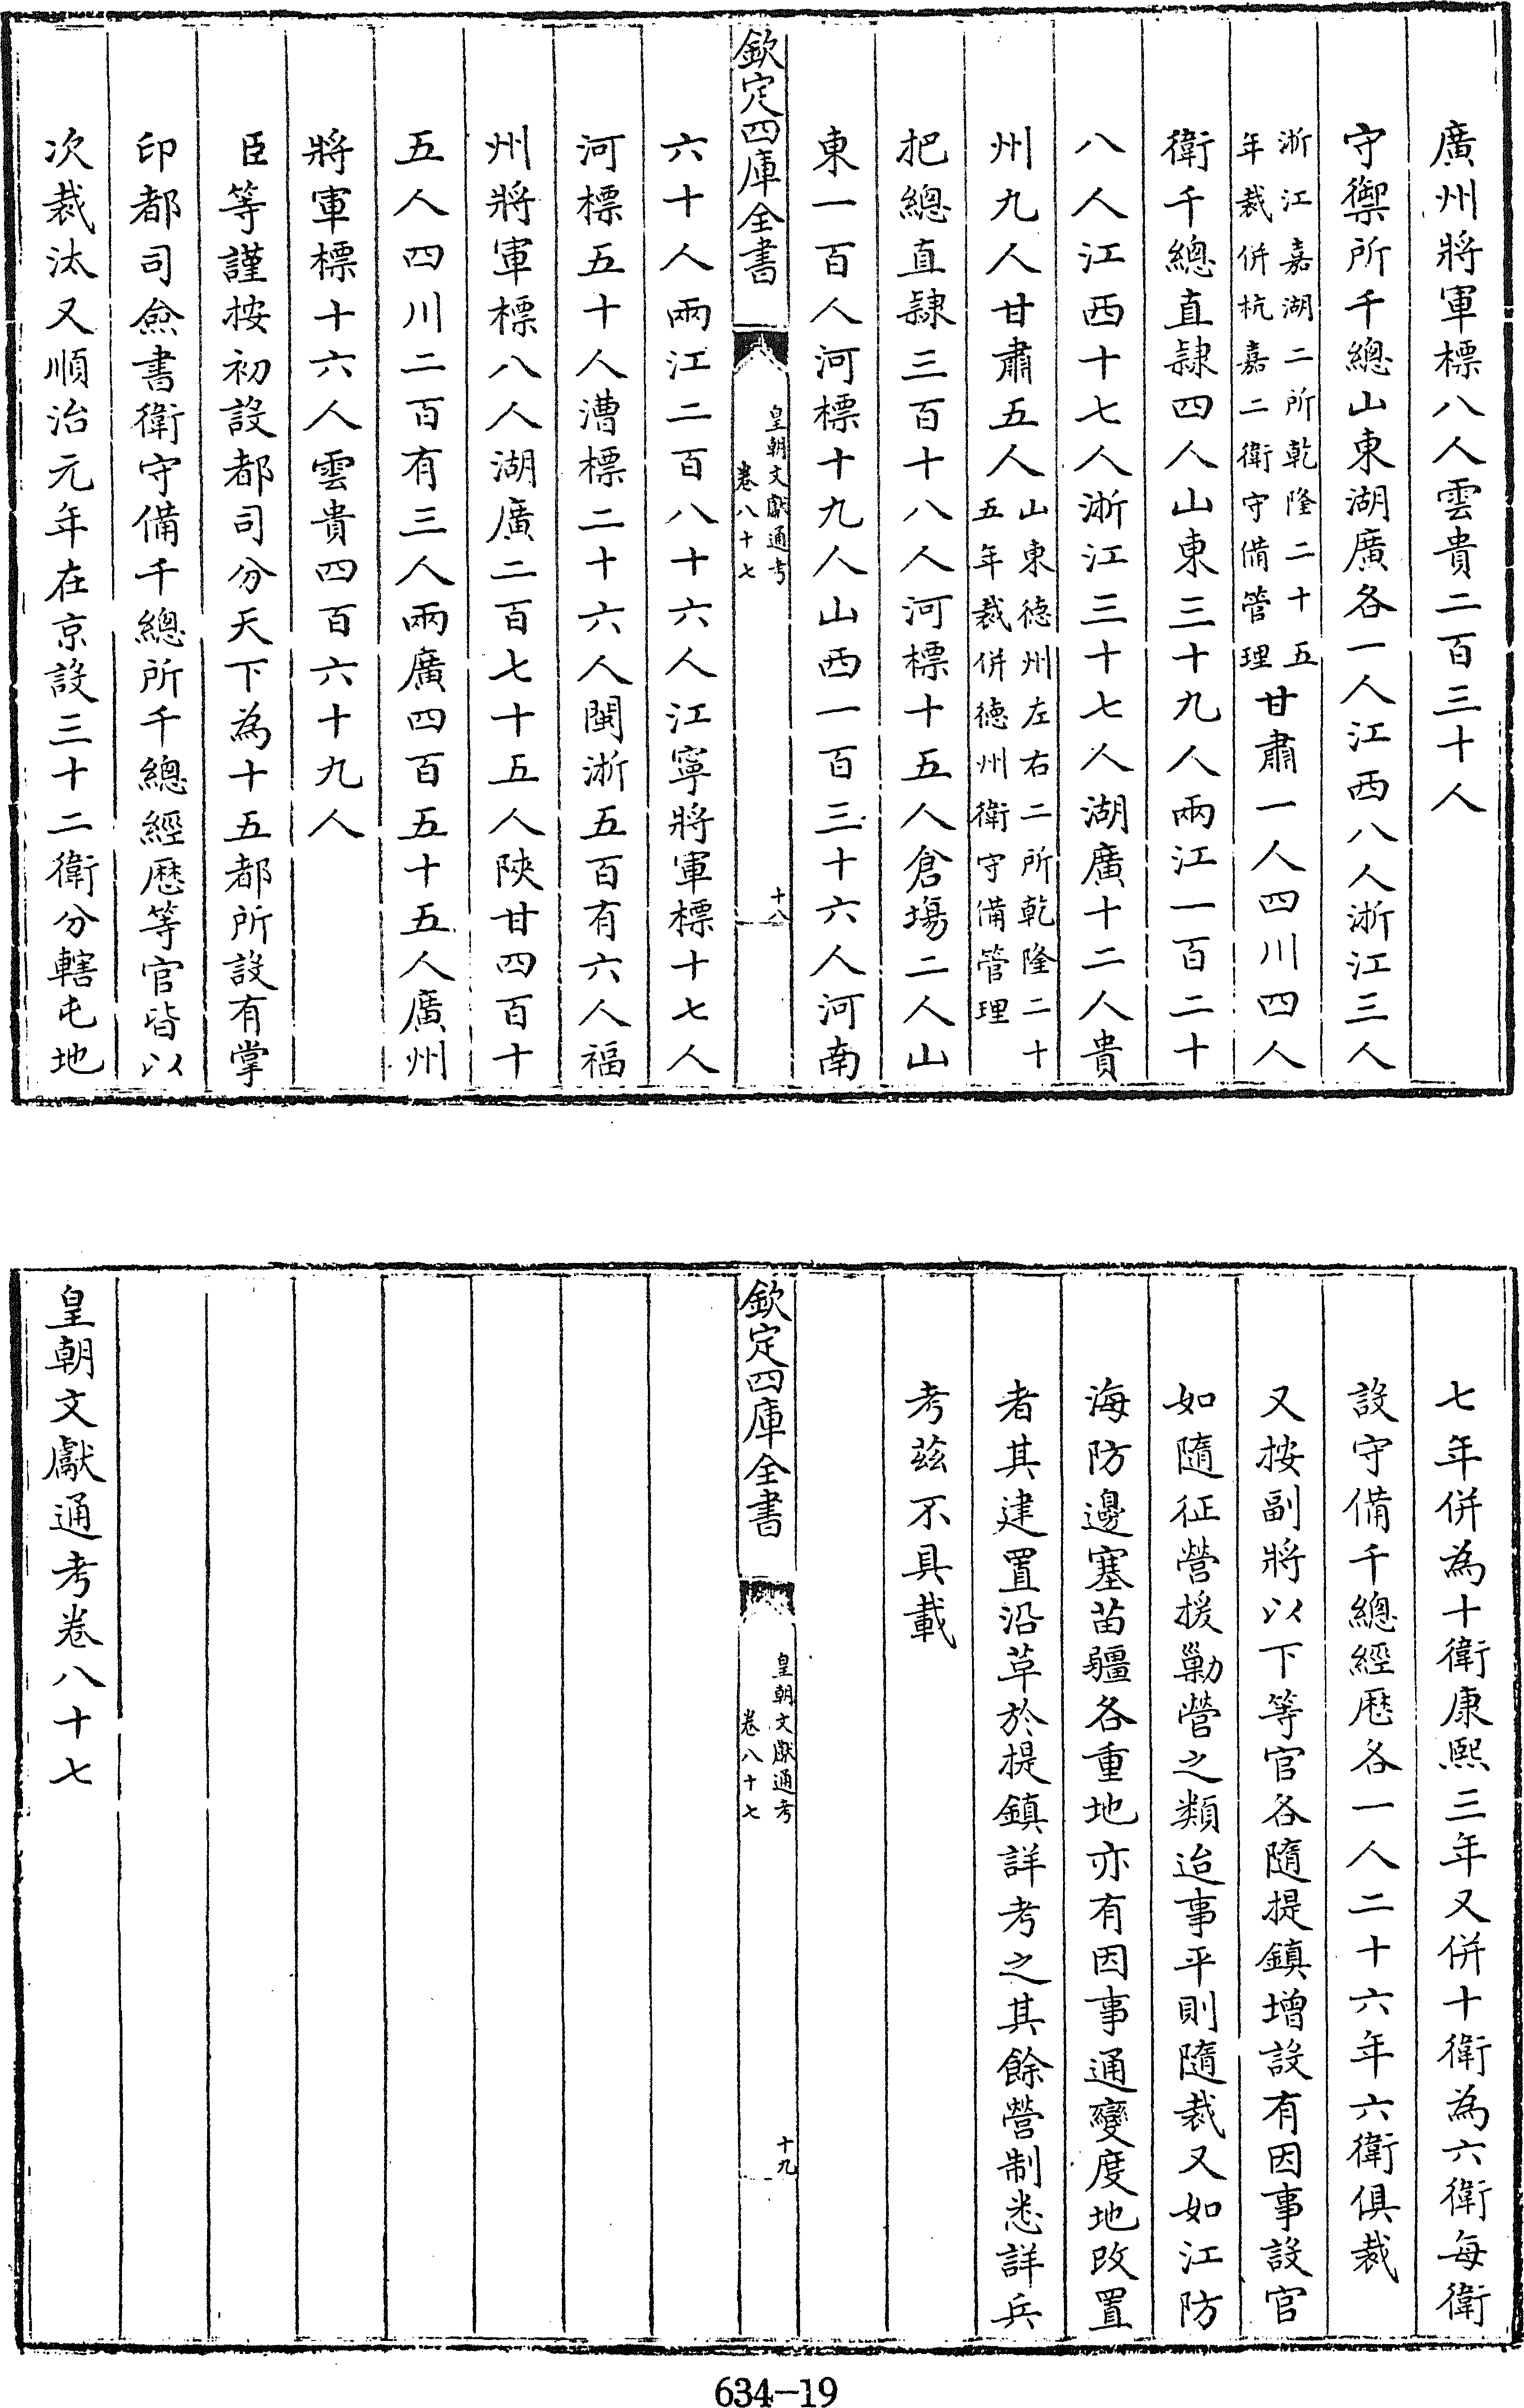 廣州將軍標八人雲貴二百三十人
守禦所千總山東湖廣各一人江西八人浙江三人
浙江嘉湖二所乾隆二十五
年裁併杭嘉二衛守備管理
甘肅一人四川四人
衛千總直隷四人山東三十九人兩江一百二十
八人江西十七人浙江三十七人湖廣十二人貴
州九人甘肅五人
山東德州左右二所乾隆二十
五年裁併德州衛守備管理
把總直隷三百十八人河標十五人倉塲二人山
東一百人河標十九人山西一百三十六人河南
欽定四庫全書
皇朝文獻通考
卷八十七
十八
六十人兩江二百八十六人江寧將軍標十七人
河標五十人漕標二十六人閩浙五百有六人福
州將軍標八人湖廣二百七十五人陜甘四百十
五人四川二百有三人兩廣四百五十五人廣州
將軍標十六人雲貴四百六十九人
臣等謹按初設都司分天下為十五都所設有掌
印都司僉書衛守備千總所千總經歴等官皆以
次裁汰又順治元年在京設三十二衛分轄屯地
七年併為十衛康熙三年又併十衛為六衛每衛
設守備千總經歴各一人二十六年六衛俱裁
又按副將以下等官各隨提鎮增設有因事設官
如隨征營援勦營之類迨事平則隨裁又如江防
海防邊塞苗疆各重地亦有因事通變度地改置
者其建置沿革於提鎮詳考之其餘營制悉詳兵
考兹不具載
欽定四庫全書
皇朝文獻通考
卷八十七
十九
皇朝文獻通考卷八十七
634-19